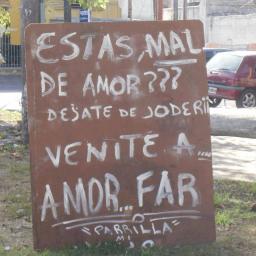 ESTAS, MAL
DE AMOR???
DEJATE DE JODER!!
VENITE A....
AMOR... FAR
"PARRILLA"
MI